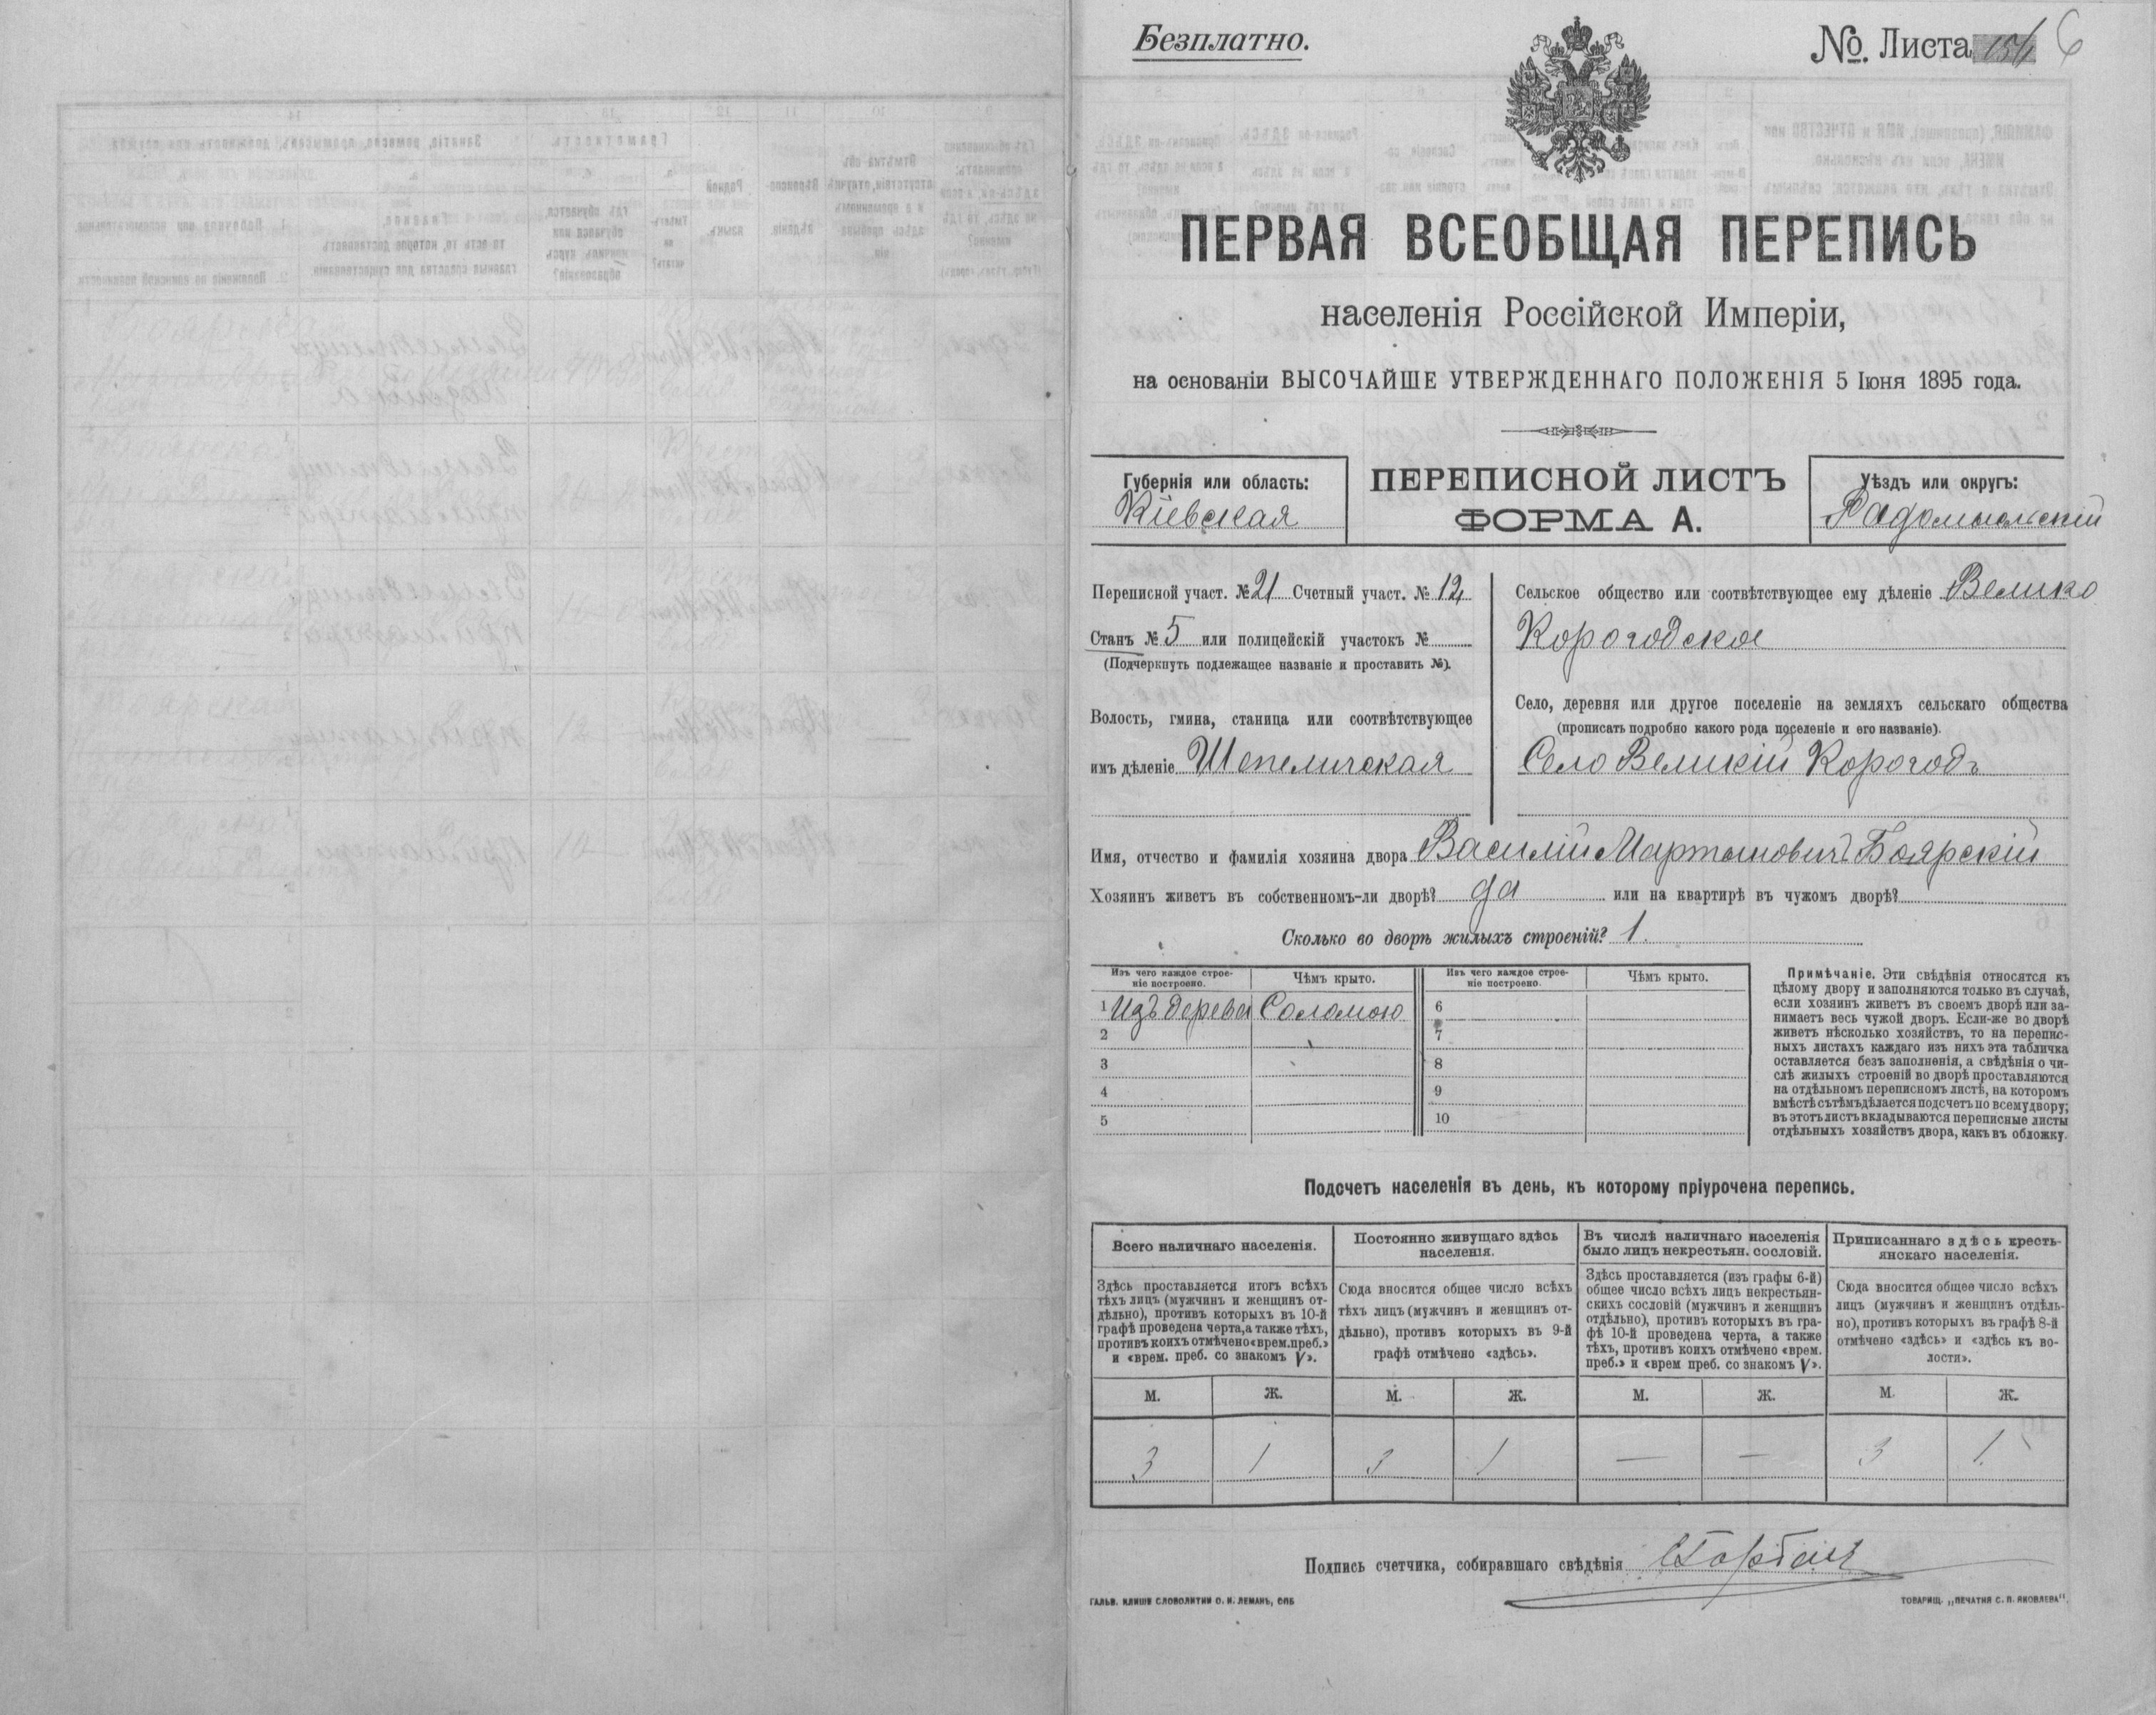 Безплатно.
№ Листа 6
ПЕРВАЯ ВСЕОБЩАЯ ПЕРЕПИСЬ
населенія Россійской Имперіи,
на основаніи ВЫСОЧАЙШЕ УТВЕРЖДЕННАГО ПОЛОЖЕНІЯ 5 Іюня 1895 года.
Губернія или область:
Кіевская
ПЕРЕПИСНОЙ ЛИСТЪ
ФОРМА А.
Уѣздъ или округъ:
Радомысльскій
Переписной участ. № 21 Счетный участ. № 12
Станъ № 5 или полицейскій участокъ №
(Подчеркнуть подлежащее названіе и проставить №).
Волость, гмина, станица или соотвѣтствующее
имъ дѣленіе Шепеличская
Сельское общество или соотвѣтствующее ему дѣленіе Велико
Корогодское
Село, деревня или другое поселеніе на земляхъ сельскаго общества
(прописать подробно какого рода поселеніе и его названіе).
Село Великій Корогодъ
Имя, отчество и фамилія хозяина двора Василій Мартыновичъ Боярскій
Хозяинъ живетъ въ собственномъ-ли дворѣ? да или на квартирѣ въ чужомъ дворѣ?
Сколько во дворѣ жилыхъ строеній? 1.
Изъ чего каждое строе-
ніе построено.
Чѣмъ крыто.
Изъ чего каждое строе-
ніе построено.
Чѣмъ крыто.
1 Изъ дерева Соломою 6
2 7
3 8
4 9
5 10
Примѣчаніе. Эти свѣдѣнія относятся къ
цѣлому двору и заполняются только въ случаѣ,
если хозяинъ живетъ въ своемъ дворѣ или за-
нимаетъ весь чужой дворъ. Если-же во дворѣ
живетъ нѣсколько хозяйствъ, то на перепис-
ныхъ листахъ каждаго изъ нихъ эта табличка
оставляется безъ заполненія, а свѣдѣнія о чи-
слѣ жилыхъ строеній во дворѣ проставляются
на отдѣльномъ переписномъ листѣ, на которомъ
вмѣстѣ съ тѣмъ дѣлается подсчетъ по всему двору;
въ этотъ листъ вкладываются переписные листы
отдѣльныхъ хозяйствъ двора, какъ въ обложку.
Подсчетъ населенія въ день, къ которому пріурочена перепись.
Всего наличнаго населенія.
Здѣсь проставляется итогъ всѣхъ
тѣхъ лицъ (мужчинъ и женщинъ от-
дѣльно), противъ которыхъ въ 10-й
графѣ проведена черта, а также тѣхъ,
противъ коихъ отмѣчено «врем. преб.»
и «врем. преб. со знакомъ V».
Постоянно живущаго здѣсь
населенія.
Сюда вносится общее число всѣхъ
тѣхъ лицъ (мужчинъ и женщинъ от-
дѣльно), противъ которыхъ въ 9-й
графѣ отмѣчено «здѣсь».
Въ числѣ наличнаго населенія
было лицъ некрестьян. сословій.
Здѣсь проставляется (изъ графы 6-й)
общее число всѣхъ лицъ некрестьян-
скихъ сословій (мужчинъ и женщинъ
отдѣльно), противъ которыхъ въ гра-
фѣ 10-й проведена черта, а также
тѣхъ, противъ коихъ отмѣчено «врем.
преб.» и «врем преб. со знакомъ V».
Приписаннаго здѣсь кресть-
янскаго населенія.
Сюда вносится общее число всѣхъ
лицъ (мужчинъ и женщинъ отдѣль-
но), противъ которыхъ въ графѣ 8-й
отмѣчено «здѣсь» и «здѣсь къ во-
лости».
М. Ж. М. Ж. М. Ж. М. Ж.
3 1 3 1 — — 3 1
Подпись счетчика, собиравшаго свѣдѣнія
ГАЛЬВ. КЛИШЕ СЛОВОЛИТНИ О. И. ЛЕМАНЪ, СПБ
ТОВАРИЩ. „ПЕЧАТНЯ С. П. ЯКОВЛЕВА".